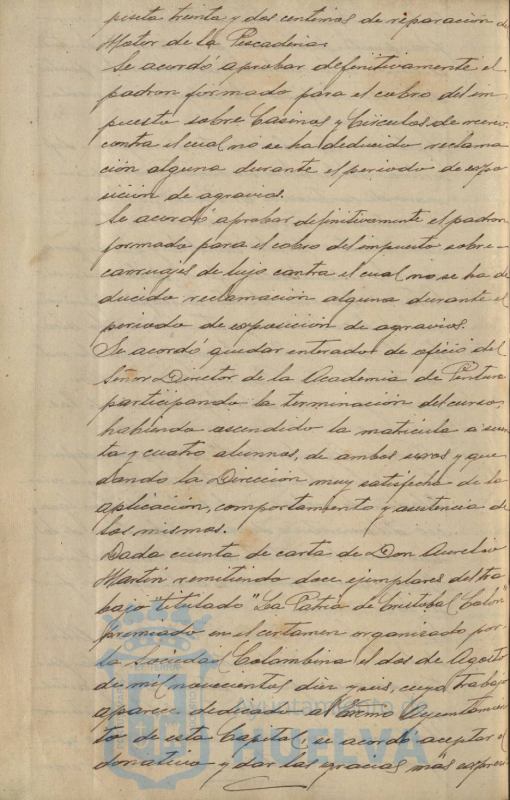 peseta treinta y dos centimos de reparación del
Motor de la Pescaderia.
Se acordó aprobar definitivamente el
padron formado para el cobro del im
puesto sobre Casinos y Circulos de recreo,
contra el cual no se ha deducido reclama
ción alguna durante el periodo de expo
sición de agravios.
Se acordó aprobar definitivamente el padron
formado para el cobro del impuesto sobre
carruajes de lujo contra el cual no se ha de
ducido reclamación alguna durante el
periodo de exposición de agravios.
Se acordó quedar enterado de oficio del
Señor Director de la Academia de Pintura
participando la terminación del curso,
habiendo ascendido la matricula a sesen
ta y cuatro alumnos, de ambos sexos y que
dando la Dirección muy satisfecha de la
aplicación, comportamiento y asistencia de
los mismos.
Dada cuenta de carta de Don Aurelio
Martín remitiendo doce ejemplares del tra
bajo titulado "La Patria de Cristobal Colon"
premiado en el certamen organizado por
la Sociedad Colombina el dos de Agosto
de mil novecientos diez y seis, cuyo trabajo
aparece dedicado al Excmo Ayuntamien
to de esta Capital, se acordó aceptar el
donativo y dar las gracias mas expresi
Ayuntamiento de
HUELVA